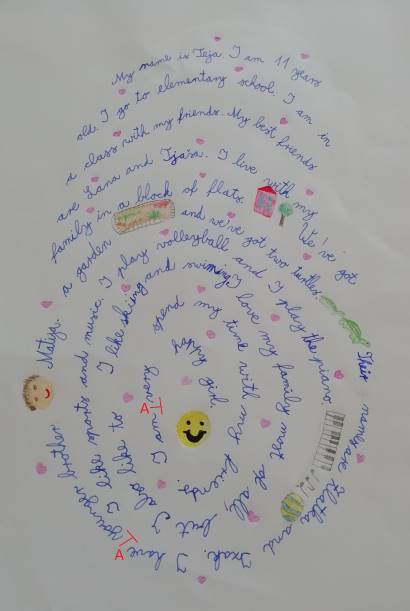 My name is Teja. I am 11 years
old. I go to elementary school. I am in
a class with my friends. My best friends
are Lana and Tjaša. I live with my
family in a block of flats. We've got
a garden and we've got two turtles.
Their names are Zlatka and
I have A younger brother Matija.
I like sports and music. I play volleyball and I play the piano.
I like skiing and swiming. I love my family most of all,
but I also like to spend my time with my friends.
I am A very happy girl.